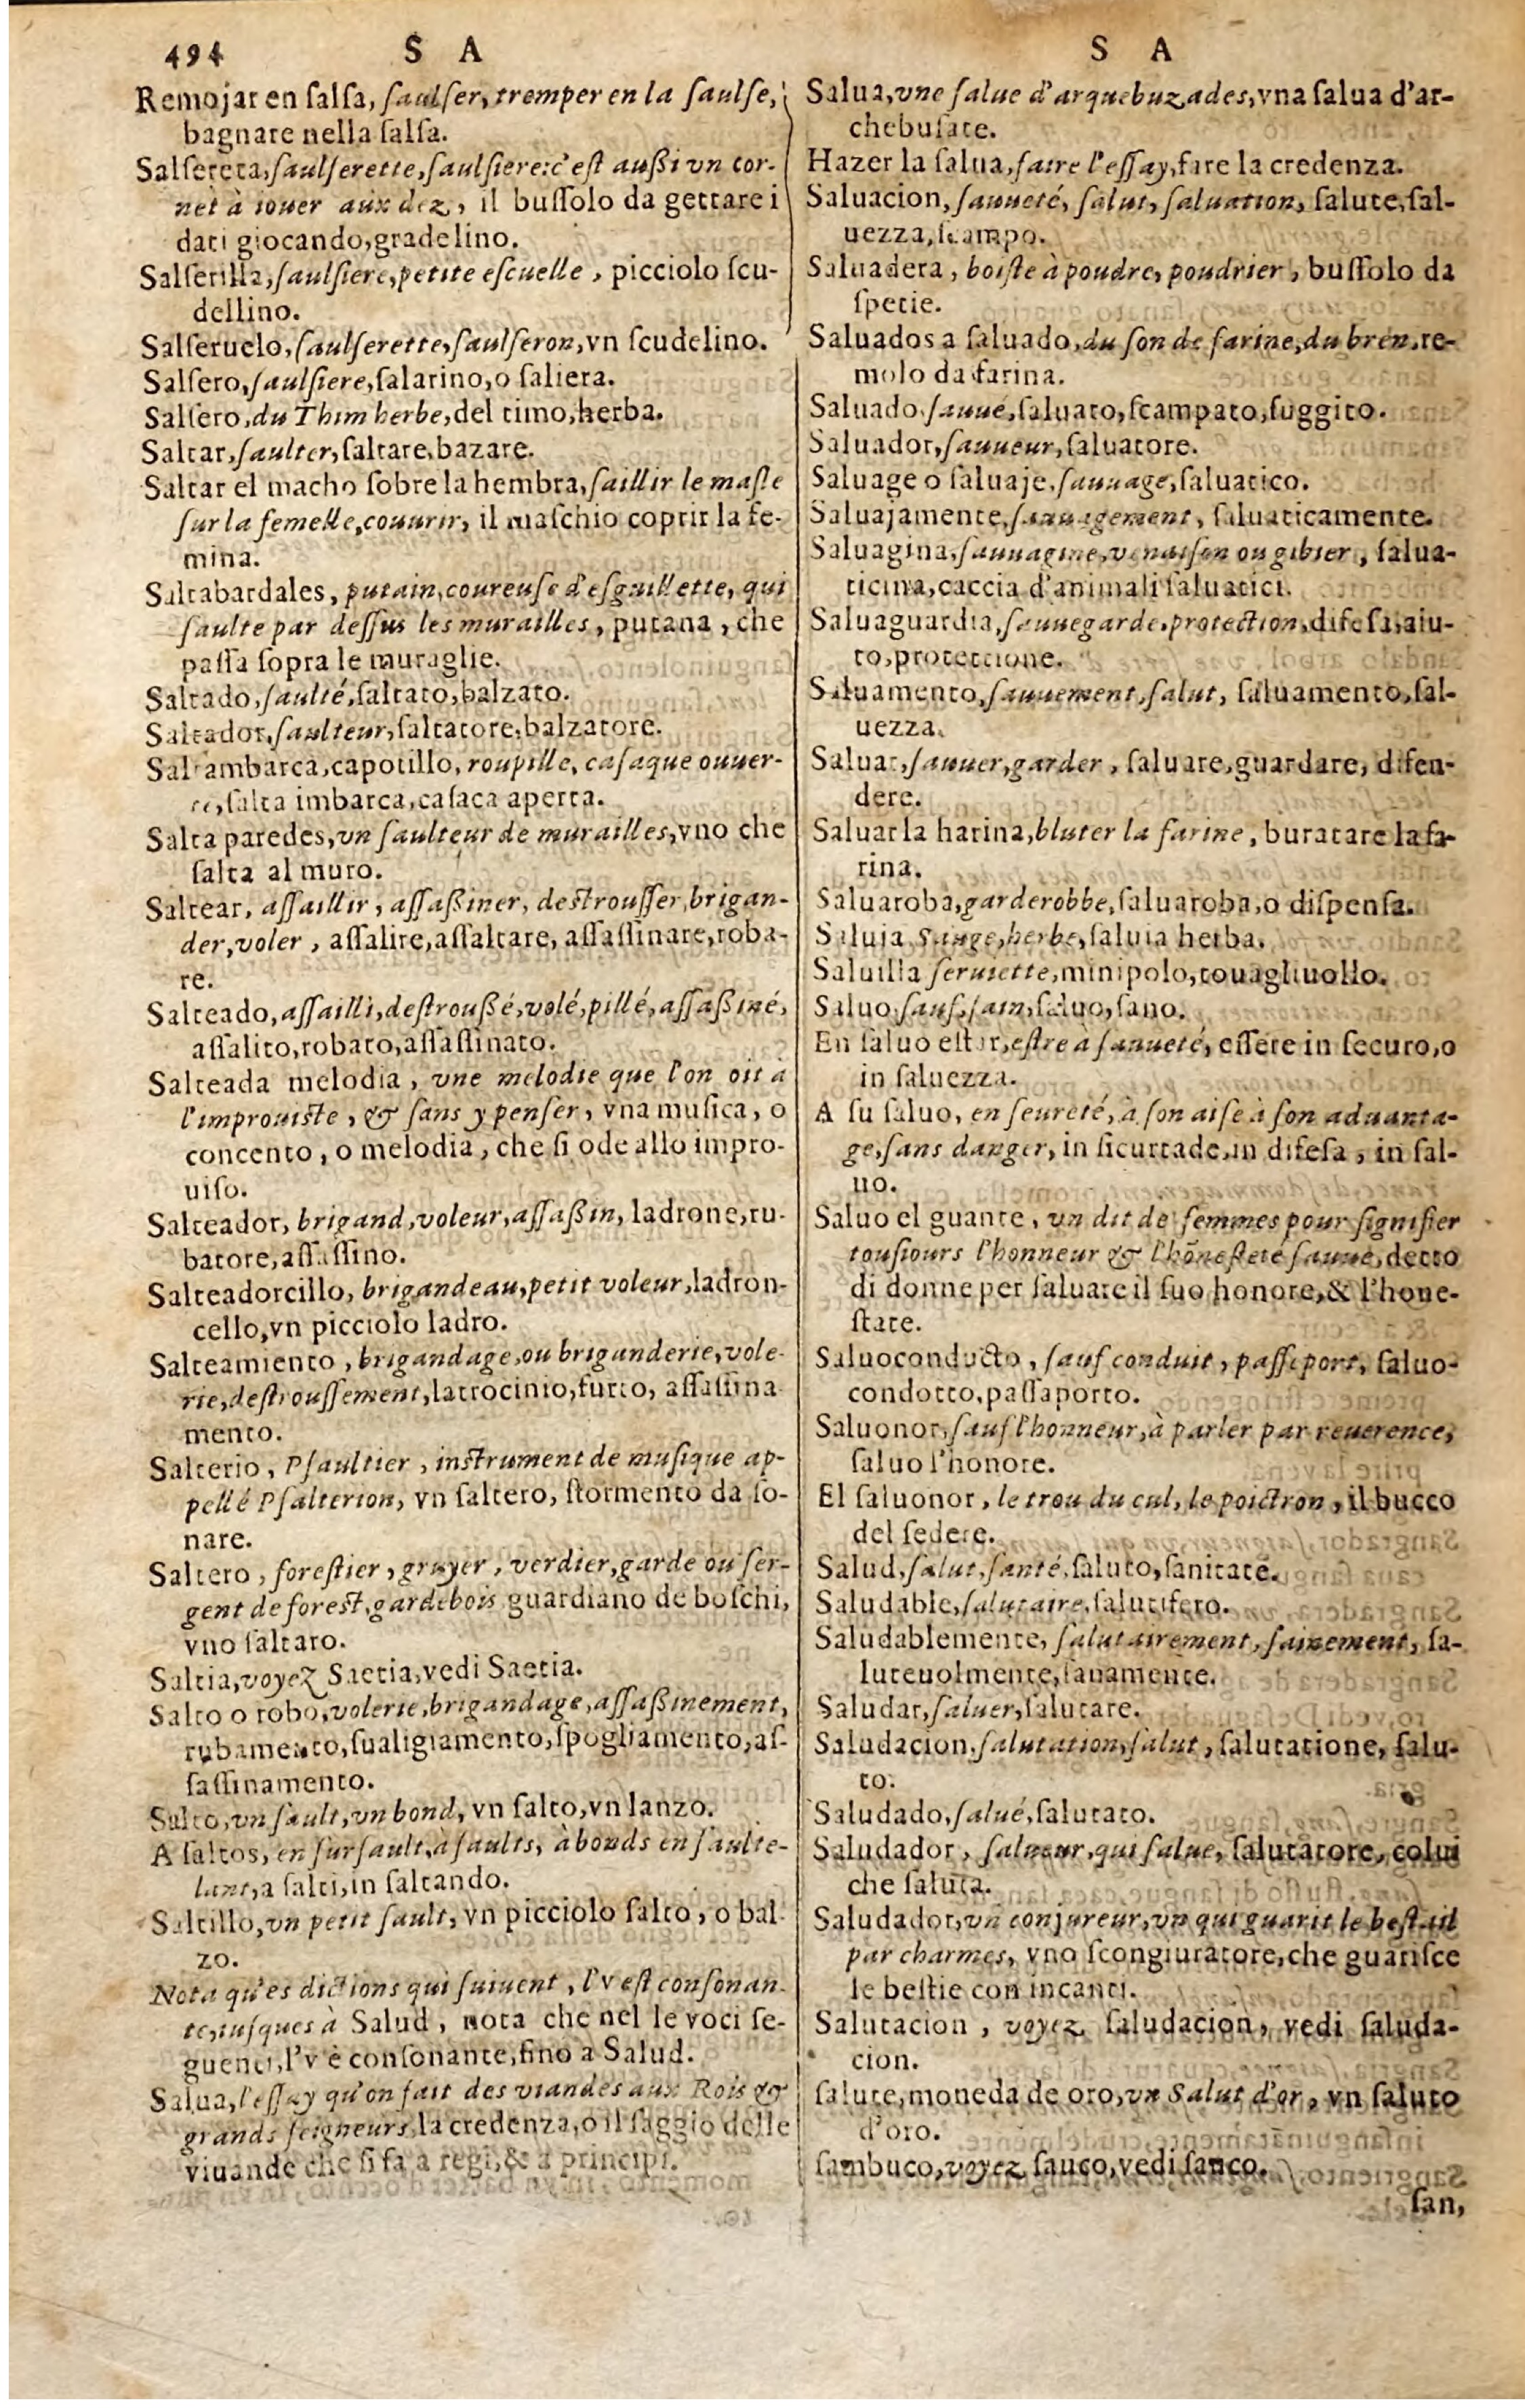 494 S A
Remojar en salsa, saulser, tremper en la saulse,
bagnare nella salsa.
Salsereta, saulserette, saulsiere: c'est aussi vn cor-
net à iouer aux dez, il bussolo da gettare i
dati giocando, gradelino.
Salserilla, saulsiere, petite escuelle, picciolo scu-
dellino.
Salseruelo, saulserette, saulseron, vn scudelino.
Salsero, saulsiere, salarino, o saliera.
Salsero, du Thim herbe, del timo, herba.
Saltar, saulter, saltare, bazare.
Saltar el macho sobre la hembra, saillir le masle
sur la femelle, couurir, il maschio coprir la fe-
mina.
Saltabardales, putain, coureuse d'esguillette, qui
saulte par dessus les murailles, putana, che
passa sopra le muraglie.
Saltado, saulté, saltato, balzato.
Saltador, saulteur, saltatore, balzatore.
Saltambarca, capotillo, roupille, casaque ouuer-
te, salta imbarca, casaca aperta.
Salta paredes, vn saulteur de murailles, vno che
salta al muro.
Saltear, assaillir, assassiner, destrousser, brigan-
der, voler, assalire, assaltare, assassinare, roba-
re.
Salteado, assailli, destroussé, volé, pillé, assassiné,
assalito, robato, assassinato.
Salteada melodia, vne melodie que l'on oit à
l'improuiste, & sans y penser, vna musica, o
concento, o melodia, che si ode allo impro-
uiso.
Salteador, brigand, voleur, assassin, ladrone, ru-
batore, assassino.
Salteadorcillo, brigandeau, petit voleur, ladron-
cello, vn picciolo ladro.
Salteamiento, brigandage, ou briganderie, vole-
rie, destroussement, latrocinio, furto, assassina
mento.
Salterio, Psaultier, instrument de musique ap-
pellé Psalterion, vn saltero, stormento da so-
nare.
Saltero, forestier, gruyer, verdier, garde ou ser-
gent de forest, gardebois guardiano de boschi,
vno saltaro.
Saltia, voyez Saetia, vedi Saetia.
Salto o robo, volerie, brigandage, assassinement,
rubamento, sualigiamento, spogliamento, as-
sassinamento.
Salto, vn sault, vn bond, vn salto, vn lanzo.
A saltos, en sursault, à saults, à bonds en saulte-
lant, a salti, in saltando.
Saltillo, vn petit sault, vn picciolo salto, o bal-
zo.
Nota qu'es dictions qui suiuent, l'v est consonan-
te, iusques à Salud, nota che nel le voci se-
guenti, l'v è consonante, fino a Salud.
Salua, l'essay qu'on fait des viandes aux Rois &
grands seigneurs, la credenza, o il saggio delle
viuande che si fa a regi, & a principi.
S A
Salua, vne salue d'arquebuzades, vna salua d'ar-
chebusate.
Hazer la salua, faire l'essay, fare la credenza.
Saluacion, sauueté, salut, saluation, salute, sal-
uezza, scampo.
Saluadera, boiste à poudre, poudrier, bussolo da
spetie.
Saluados a saluado, du son de farine, du bren, re-
molo da farina.
Saluado, sauué, saluato, scampato, fuggito.
Saluador, sauueur, saluatore.
Saluage o saluaje, sauuage, saluatico.
Saluajamente, sauuagement, saluaticamente.
Saluagina, sauuagine, venaison ou gibier, salua-
ticina, caccia d'animali saluatici.
Saluaguardia, sauuegarde, protection, difesa, aiu-
to, protettione.
Saluamento, sauuement, salut, saluamento, sal-
uezza.
Saluar, sauuer, garder, saluare, guardare, difen-
dere.
Saluar la harina, bluter la farine, buratare la fa-
rina.
Saluaroba, garderobbe, saluaroba, o dispensa.
Saluia Sauge, herbe, saluia herba.
Saluilla seruiette, minipolo, touagliuollo.
Saluo, sauf, sain, saluo, sano.
En saluo estar, estre à sauueté, essere in securo, o
in saluezza.
A su saluo, en seureté, à son aise à son aduanta-
ge, sans danger, in sicurtade, in difesa, in sal-
uo.
Saluo el guante, vn dit de femmes pour signifier
tousiours l'honneur & l'hõnesteté sauue, detto
di donne per saluare il suo honore, & l'hone-
state.
Saluoconducto, sauf conduit, passeport, saluo-
condotto, passaporto.
Saluonor, sauf l'honneur, à parler par reuerence,
saluo l'honore.
El saluonor, le trou du cul, le poictron, il bucco
del sedere.
Salud, salut, santé, saluto, sanitate.
Saludable, salutaire, salutifero.
Saludablemente, salutairement, sainement, sa-
luteuolmente, sanamente.
Saludar, saluer, salutare.
Saludacion, salutation, salut, salutatione, salu-
to.
Saludado, salué, salutato.
Saludador, salueur, qui salue, salutatore, colui
che saluta.
Saludador, vn conjureur, vn qui guarit le bestail
par charmes, vno scongiuratore, che guarisce
le bestie con incanti.
Salutacion, voyez saludacion, vedi saluda-
cion.
salute, moneda de oro, vn Salut d'or, vn saluto
d'oro.
sambuco, voyez sauco, vedi sauco.
san,